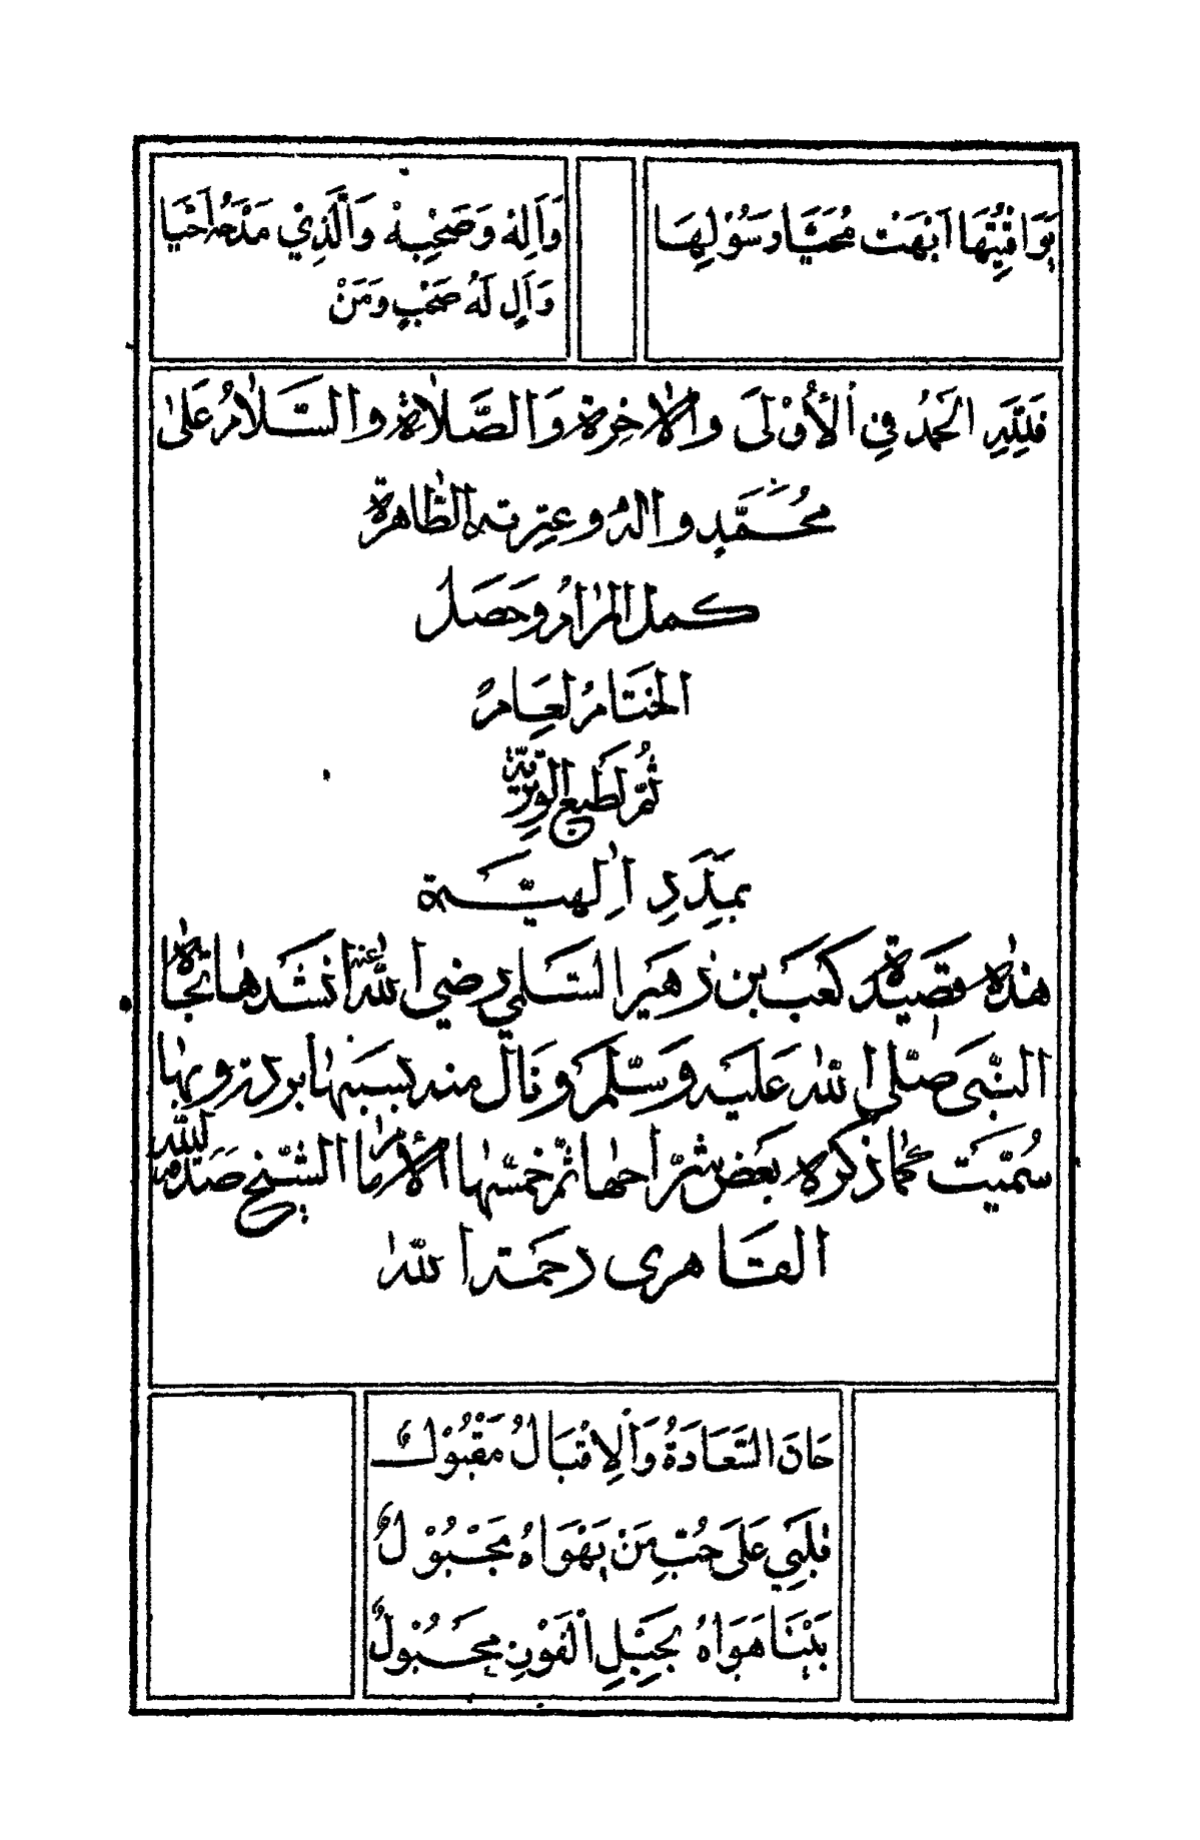 يَوَاقِيْتُهَا اَبْهَتْ مُحَيَّا وَسُوْلِهَا
وَاٰلِهٖ وَصَحْبِهٖ وَالَّذِيْ مَدْحَهُ اَحْيَا
وَاٰلٍ لَهُ صَحْبٍ وَمَنْ
فَلِلّٰهِ الْحَمْدُ فِى الْأُوْلَى وَالْاٰخِرَةِ وَالصَّلَاةُ وَالسَّلَامُ عَلٰى
مُحَمَّدٍ وَاٰلِهٖ وَعِتْرَتِهِ الطَّاهِرَةِ
كمل المرامُ وَحَصَل
الختَامُ لِعَامِ
ثُمَّ لطبع
بِمَدَدِ اِلٰهِيَّة
هٰذِهٖ قَصِيْدَةُ كَعَب بن زُهَيْر السَّلمي رضي اللّٰه عنه اَنْشَدَهَا تِجَاهَ
النَّبِيّ صَلَّى اللّٰه عَلَيْهِ وَسَلَّمَ وَنَالَ منه بِسَبَبِهَا بردته وبها
سُمِّيَتْ كَمَا ذكره بَعْض شُرَّاحِهَا ثُمَّ خمَّسَهَا الْأِمَامُ الشَّيْخ صَدَقَةُ اللّٰه
القَاهرى رحمَهُ اللّٰه
حَانَ السَّعَادَةُ وَالْاِقْبَالُ مَقْبُوْلٌ
قَلْبِيْ عَلَى حُبِّ مَنْ يَهْوَاهُ مَجْبُوْلٌ
بَيْنَا هَوَاهُ بِحَبْلِ الْفَوْزِ مَحْبُوْلٌ